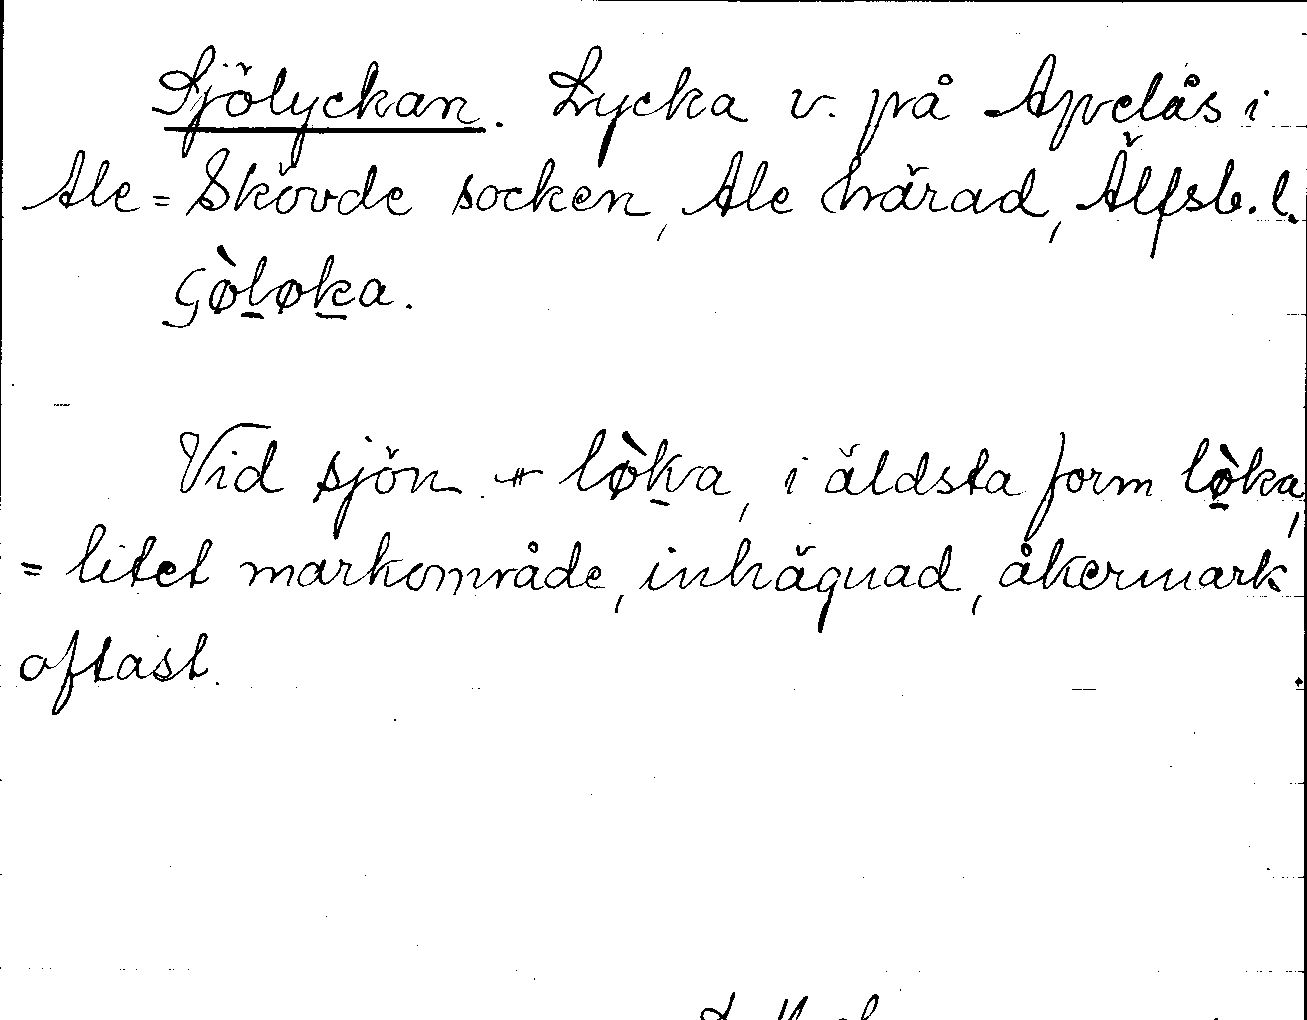 Sjölyckan. Lycka v. på Apelås i
Ale=Skövde socken, Ale härad, Älfsb. l.
Gø̀l̲øk̲a.
Vid sjön + lø̀k̲a, i äldsta form lø̲̀ka,
= litet markområde, inhägnad, åkermark
oftast.